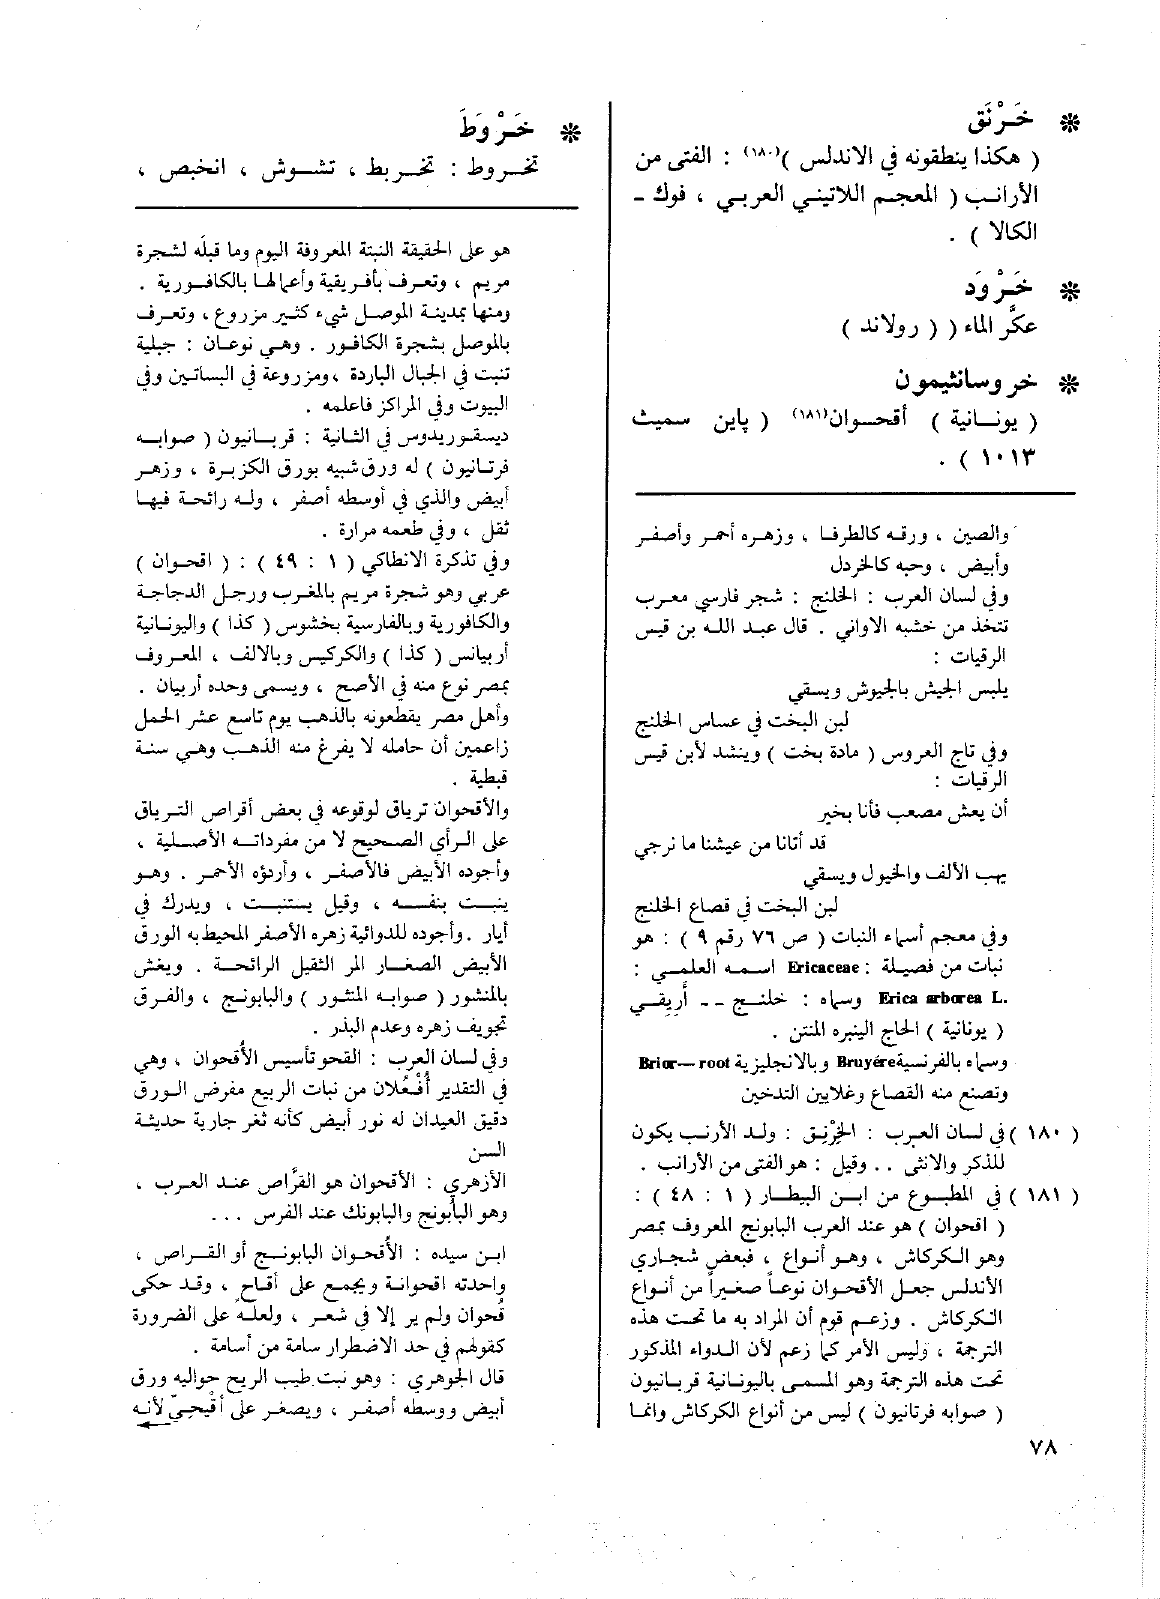 * خَرْنَق
( هكذا ينطقونه في الاندلس )(١٨٠) : الفتى من
الأرانب ( المعجم اللاتيني العربي ، فوك ـ
الكالا ) .
* خَرْوَد
عكَّر الماء ( ( رولاند )
* خروسانثيمون
( يونانية ) أقحوان(١٨١) ( پاين سميث
١٠١٣ ) .
والصين ، ورقه كالطرفا ، وزهره أحمر وأصفر
وأبيض ، وحبه كالخردل
وفي لسان العرب : الخلنج : شجر فارسي معرب
تتخذ من خشبه الاواني . قال عبد الله بن قيس
الرقيات :
يلبس الجيش بالجيوش ويسقي
لبن البخت في عساس الخلنج
وفي تاج العروس ( مادة بخت ) وينشد لأبن قيس
الرقيات :
أن يعش مصعب فأنا بخير
قد أتانا من عيشنا ما نرجي
يهب الألف والخيول ويسقي
لبن البخت في قصاع الخلنج
وفي معجم أسماء النبات ( ص ٧٦ رقم ٩ ) : هو
نبات من فصيلة : Ericaceae اسمه العلمي :
Erica arborea L. وسماه : خلنج -- أَرِيقي
( يونانية ) الحاج الينبره المنتن .
وسماه بالفرنسية Bruyére وبالانجليزية Brior—root
وتصنع منه القصاع وغلايين التدخين
( ١٨٠ ) في لسان العرب : الخِرْنِق : ولد الأرنب يكون
للذكر والانثى .. وقيل : هو الفتى من الأرانب .
( ١٨١ ) في المطبوع من ابن البيطار ( ١ : ٤٨ ) :
( اقحوان ) هو عند العرب البابونج المعروف بمصر
وهو الكركاش ، وهو أنواع ، فبعض شجاري
الأندلس جعل الأقحوان نوعاً صغيراً من أنواع
الكركاش . وزعم قوم أن المراد به ما تحت هذه
الترجمة ، وليس الأمر كما زعم لأن الدواء المذكور
تحت هذه الترجمة وهو المسمى باليونانية قربانيون
( صوابه فرتانيون ) ليس من أنواع الكركاش وانما
* خَرْوَطَ
تخروط : تخربط ، تشوش ، انخبص ،
هو على الحقيقة النبتة المعروفة اليوم وما قبله لشجرة
مريم ، وتعرف بأفريقية وأعمالها بالكافورية .
ومنها بمدينة الموصل شيء كثير مزروع ، وتعرف
بالموصل بشجرة الكافور . وهي نوعان : جبلية
تنبت في الجبال الباردة ، ومزروعة في البساتين وفي
البيوت وفي المراكز فاعلمه .
ديسقوريدوس في الثانية : قربانيون ( صوابه
فرتانيون ) له ورق شبيه بورق الكزبرة ، وزهر
أبيض والذي في أوسطه أصفر ، وله رائحة فيها
ثقل ، وفي طعمه مرارة .
وفي تذكرة الانطاكي ( ١ : ٤٩ ) : ( اقحوان )
عربي وهو شجرة مريم بالمغرب ورجل الدجاجة
والكافورية وبالفارسية بخشوس ( كذا ) واليونانية
أربيانس ( كذا ) والكركيس وبالالف ، المعروف
بمصر نوع منه في الأصح ، ويسمى وحده أربيان .
وأهل مصر يقطعونه بالذهب يوم تاسع عشر الحمل
زاعمين أن حامله لا يفرغ منه الذهب وهي سنة
قبطية .
والأقحوان ترياق لوقوعه في بعض أقراص الترياق
على الرأي الصحيح لا من مفرداته الأصلية ،
وأجوده الأبيض فالأصفر ، وأردؤه الأحمر . وهو
ينبت بنفسه ، وقيل يستنبت ، ويدرك في
أيار . وأجوده للدوائية زهره الأصفر المحيط به الورق
الأبيض الصغار المر الثقيل الرائحة . ويغش
بالمنشور ( صوابه المنثور ) والبابونج ، والفرق
تجويف زهره وعدم البذر .
وفي لسان العرب : القحو تأسيس الأُقحوان ، وهي
في التقدير أُفْعُلان من نبات الربيع مفرض الورق
دقيق العيدان له نور أبيض كأنه ثغر جارية حديثة
السن
الأزهري : الأقحوان هو القرَّاص عند العرب ،
وهو البابونج والبابونك عند الفرس ...
ابن سيده : الأُقحوان البابونج أو القراص ،
واحدته اقحوانة ويجمع على أقاحٍ ، وقد حكى
قُحوان ولم ير إلا في شعر ، ولعله على الضرورة
كقولهم في حد الاضطرار سامة من أسامة .
قال الجوهري : وهو نبت طيب الريح حواليه ورق
أبيض ووسطه أصفر ، ويصغر على أُقيْحيّ لأنه
٧٨